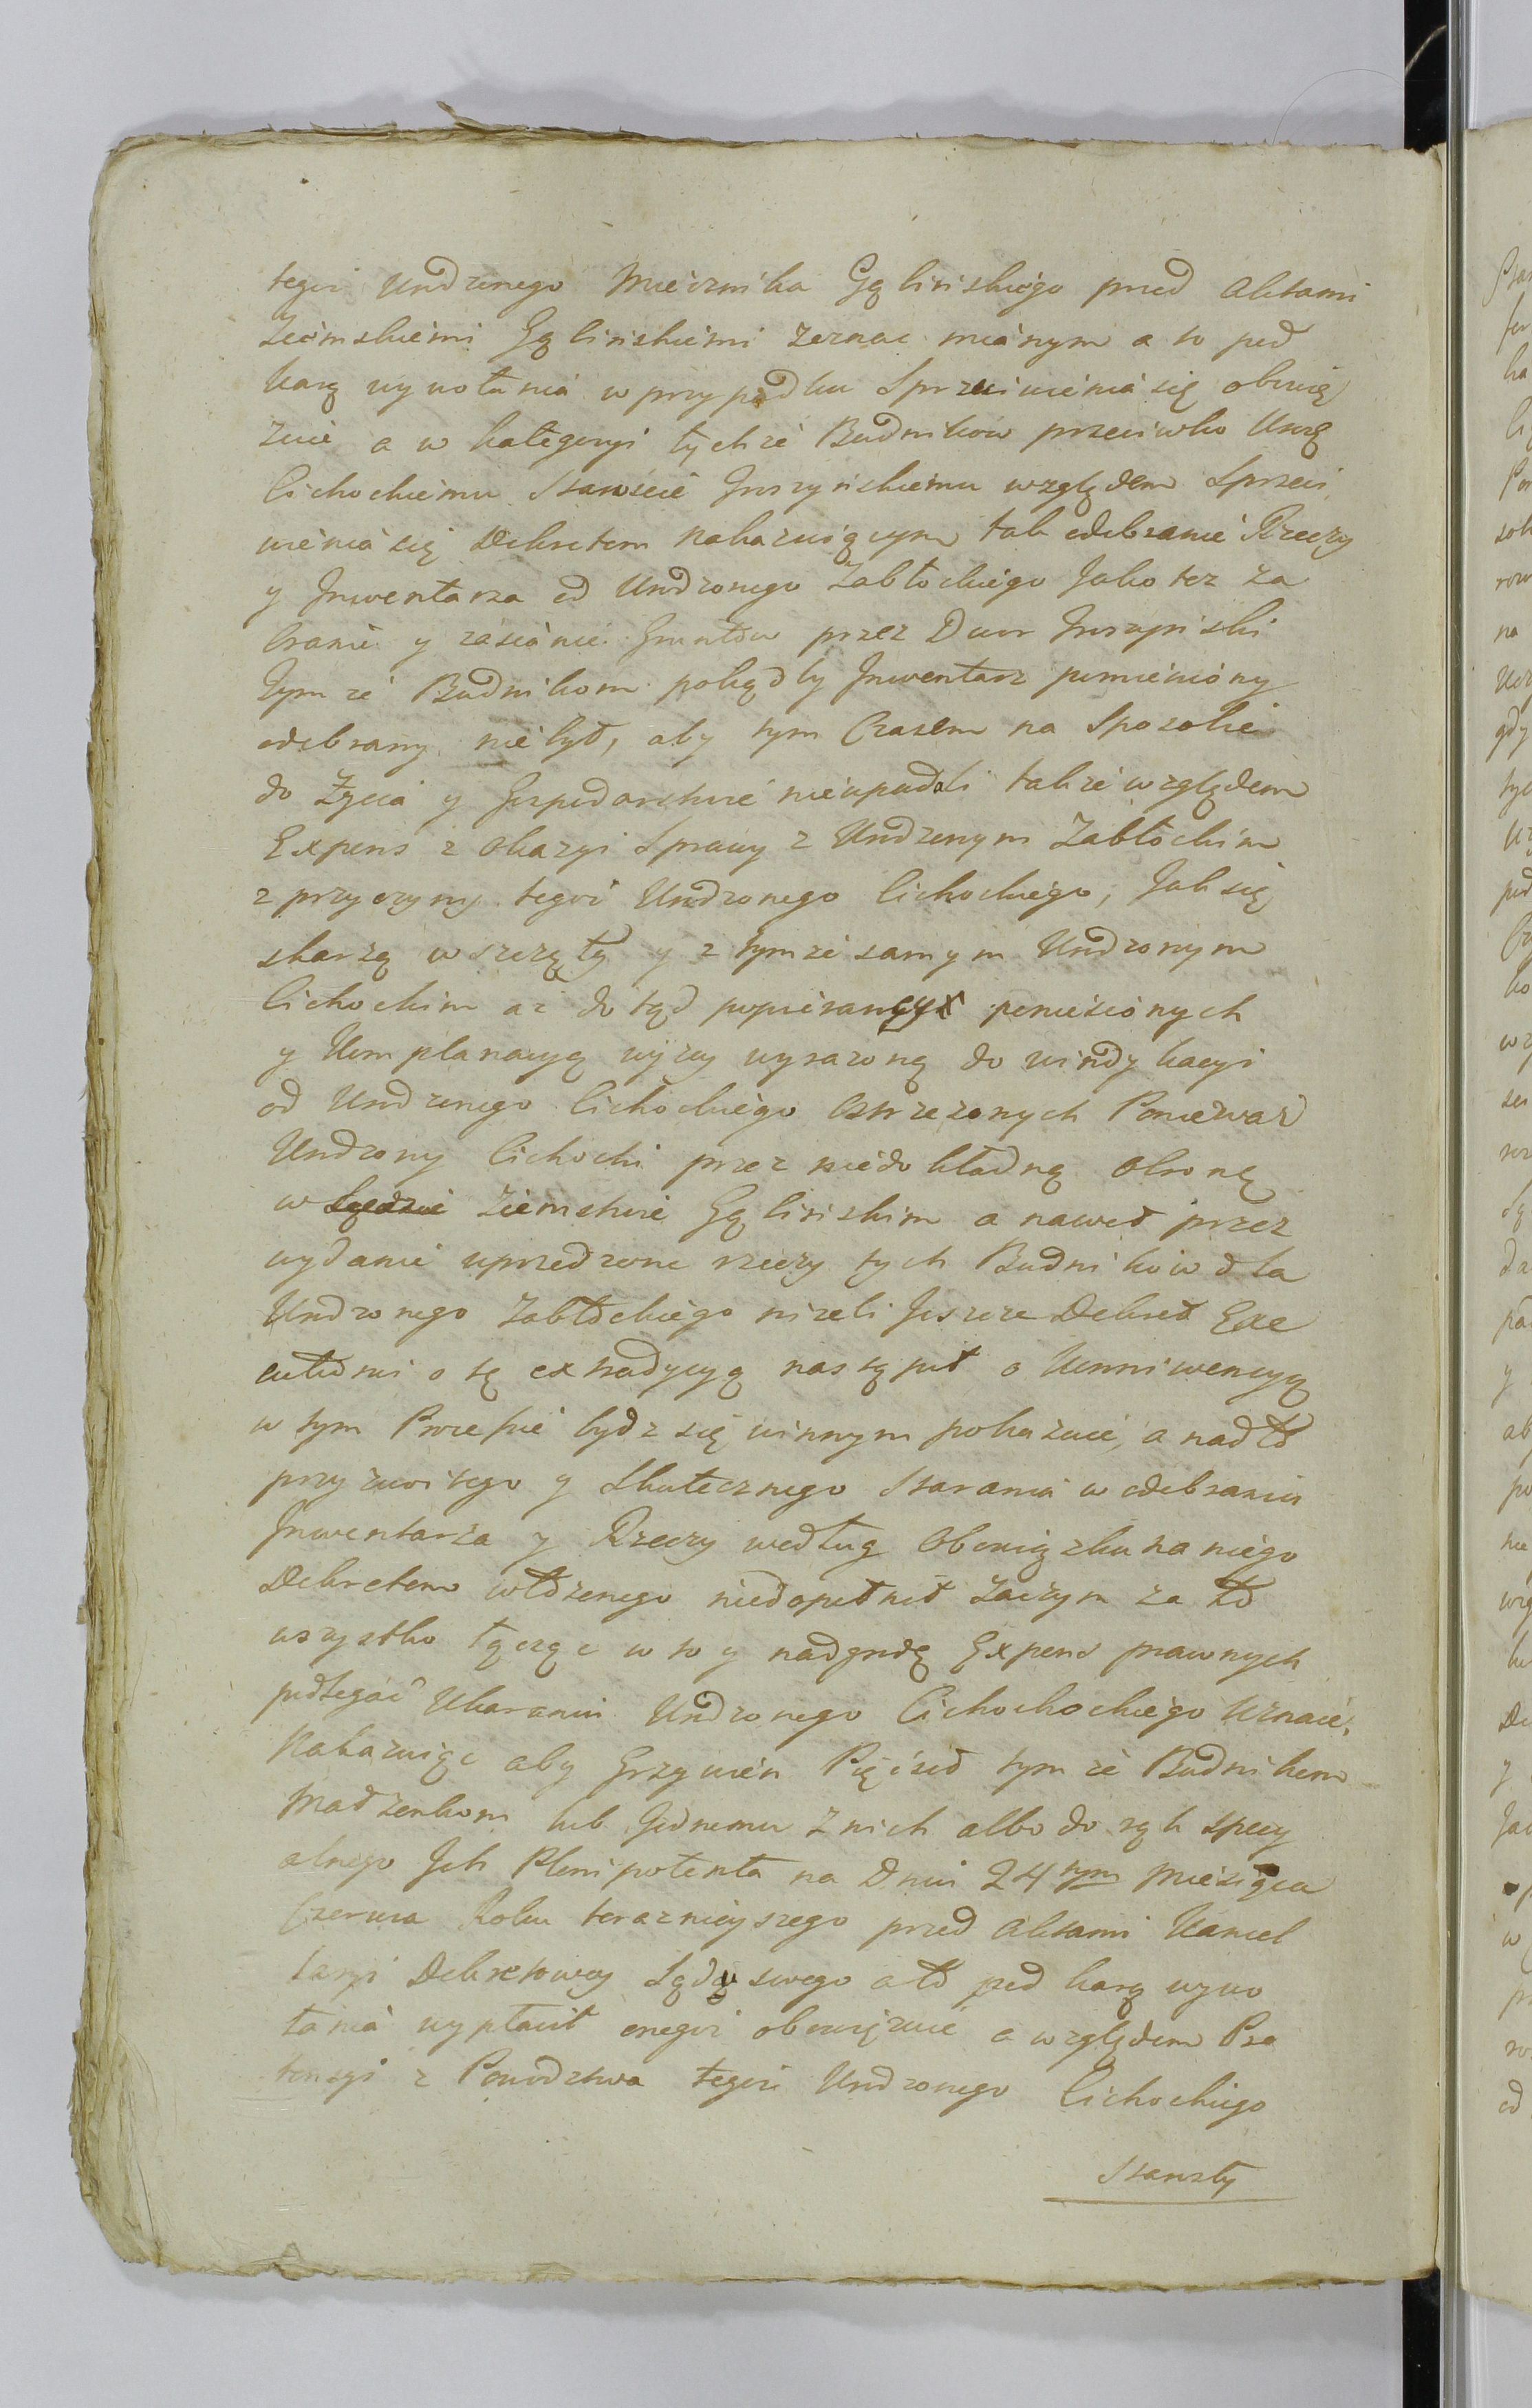 tegoż Urodzonego Miecznika Gąbińskiego przed Aktami
Ziemskiemi Gąbińskiemi zeznać mianym a to pod
karą wywołania w przypadku Sprzeciwienia się obowią
zuie a w kategoryi tychże Budników przeciwko Urzę
Cichockiemu Staroście względem Sprzeci
wienia się Dekretem Nakazuiącym tak odebranie Rzeczy
y Inwentarza od Urodzonego Zabłockiego Jako też za
branie y zasianie Gruntów przez Dwor
Tymże Budnikom pokądby Inwentarz pomieniony
odebrany nie był, aby tym Czasem na Sposobie
do Życia y Gospodarstwie nieupadali także względem
Expens z Okazyi Sprawy z Urodzonym Zabłockim
z przyczyny tegoż Urodzonego Cichockiego, Jak się
skarżą wszczęty y z tymże samym Urodzonym
Cichockim aż do tąd popieraney poniesionych
y Komplanacyą wyży wyrażoną do windykacyi
od Urodzonego Cichockiego ostrzeżonych Ponieważ
Urodzony Cichocki przez niedokładną obronę
w Sądzie Ziemskie Gąbińskim a nawet przez
wydanie uprzedzone rzeczy tych Budników dla
Urodzonego Zabłockiego niżeli Jeszcze Dekret Exe
cutionis o tę extradycyą nastąpił o Konniwencyą
w tym Processie bydz się winnym pokazuie, a nadto
przyzwoitego y Skutecznego Starania w odebraniu
Inwentarza y Rzeczy według Obowiązku na niego
Dekretem włożonego niedopełnił zaczym za to
wszystko łącząc w to y nadgrodę Expens prawnych
podlegać Ukaraniu Urodzonego Cichochockiego Uznaie,
Nakazuiąc aby Grzywien Pięćset tymże Budnikom
Małżonkom lub Jednemu z nich albo do rąk specy
alnego Jch Plenipotenta na Dniu 24tym Miesiąca
Czerwca Roku teraznieyszego przed Aktami Kancel
laryi Dekretowey Sądu swego a to pod karą wywo
łania wypłacił onegoż obowięzuie a względem Pre
tensyi z Powodztwa tegoż Urodzonego Cichockiego
Starosty